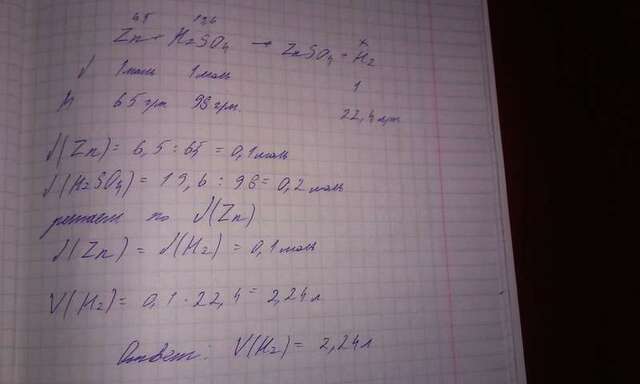 6,5 19,6 x
Zn + H₂SO₄ → ZnSO₄ + H₂
√ 1моль 1моль 1
M 65гр 98гр. 22,4лтр
√(Zn) = 6,5 : 65 = 0,1моль
√(H₂SO₄) = 19,6 : 98 = 0,2моль
решаем по √(Zn)
√(Zn) = √(H₂) = 0,1моль
V(H₂) = 0,1 · 22,4 = 2,24л
Ответ: V(H₂) = 2,24л